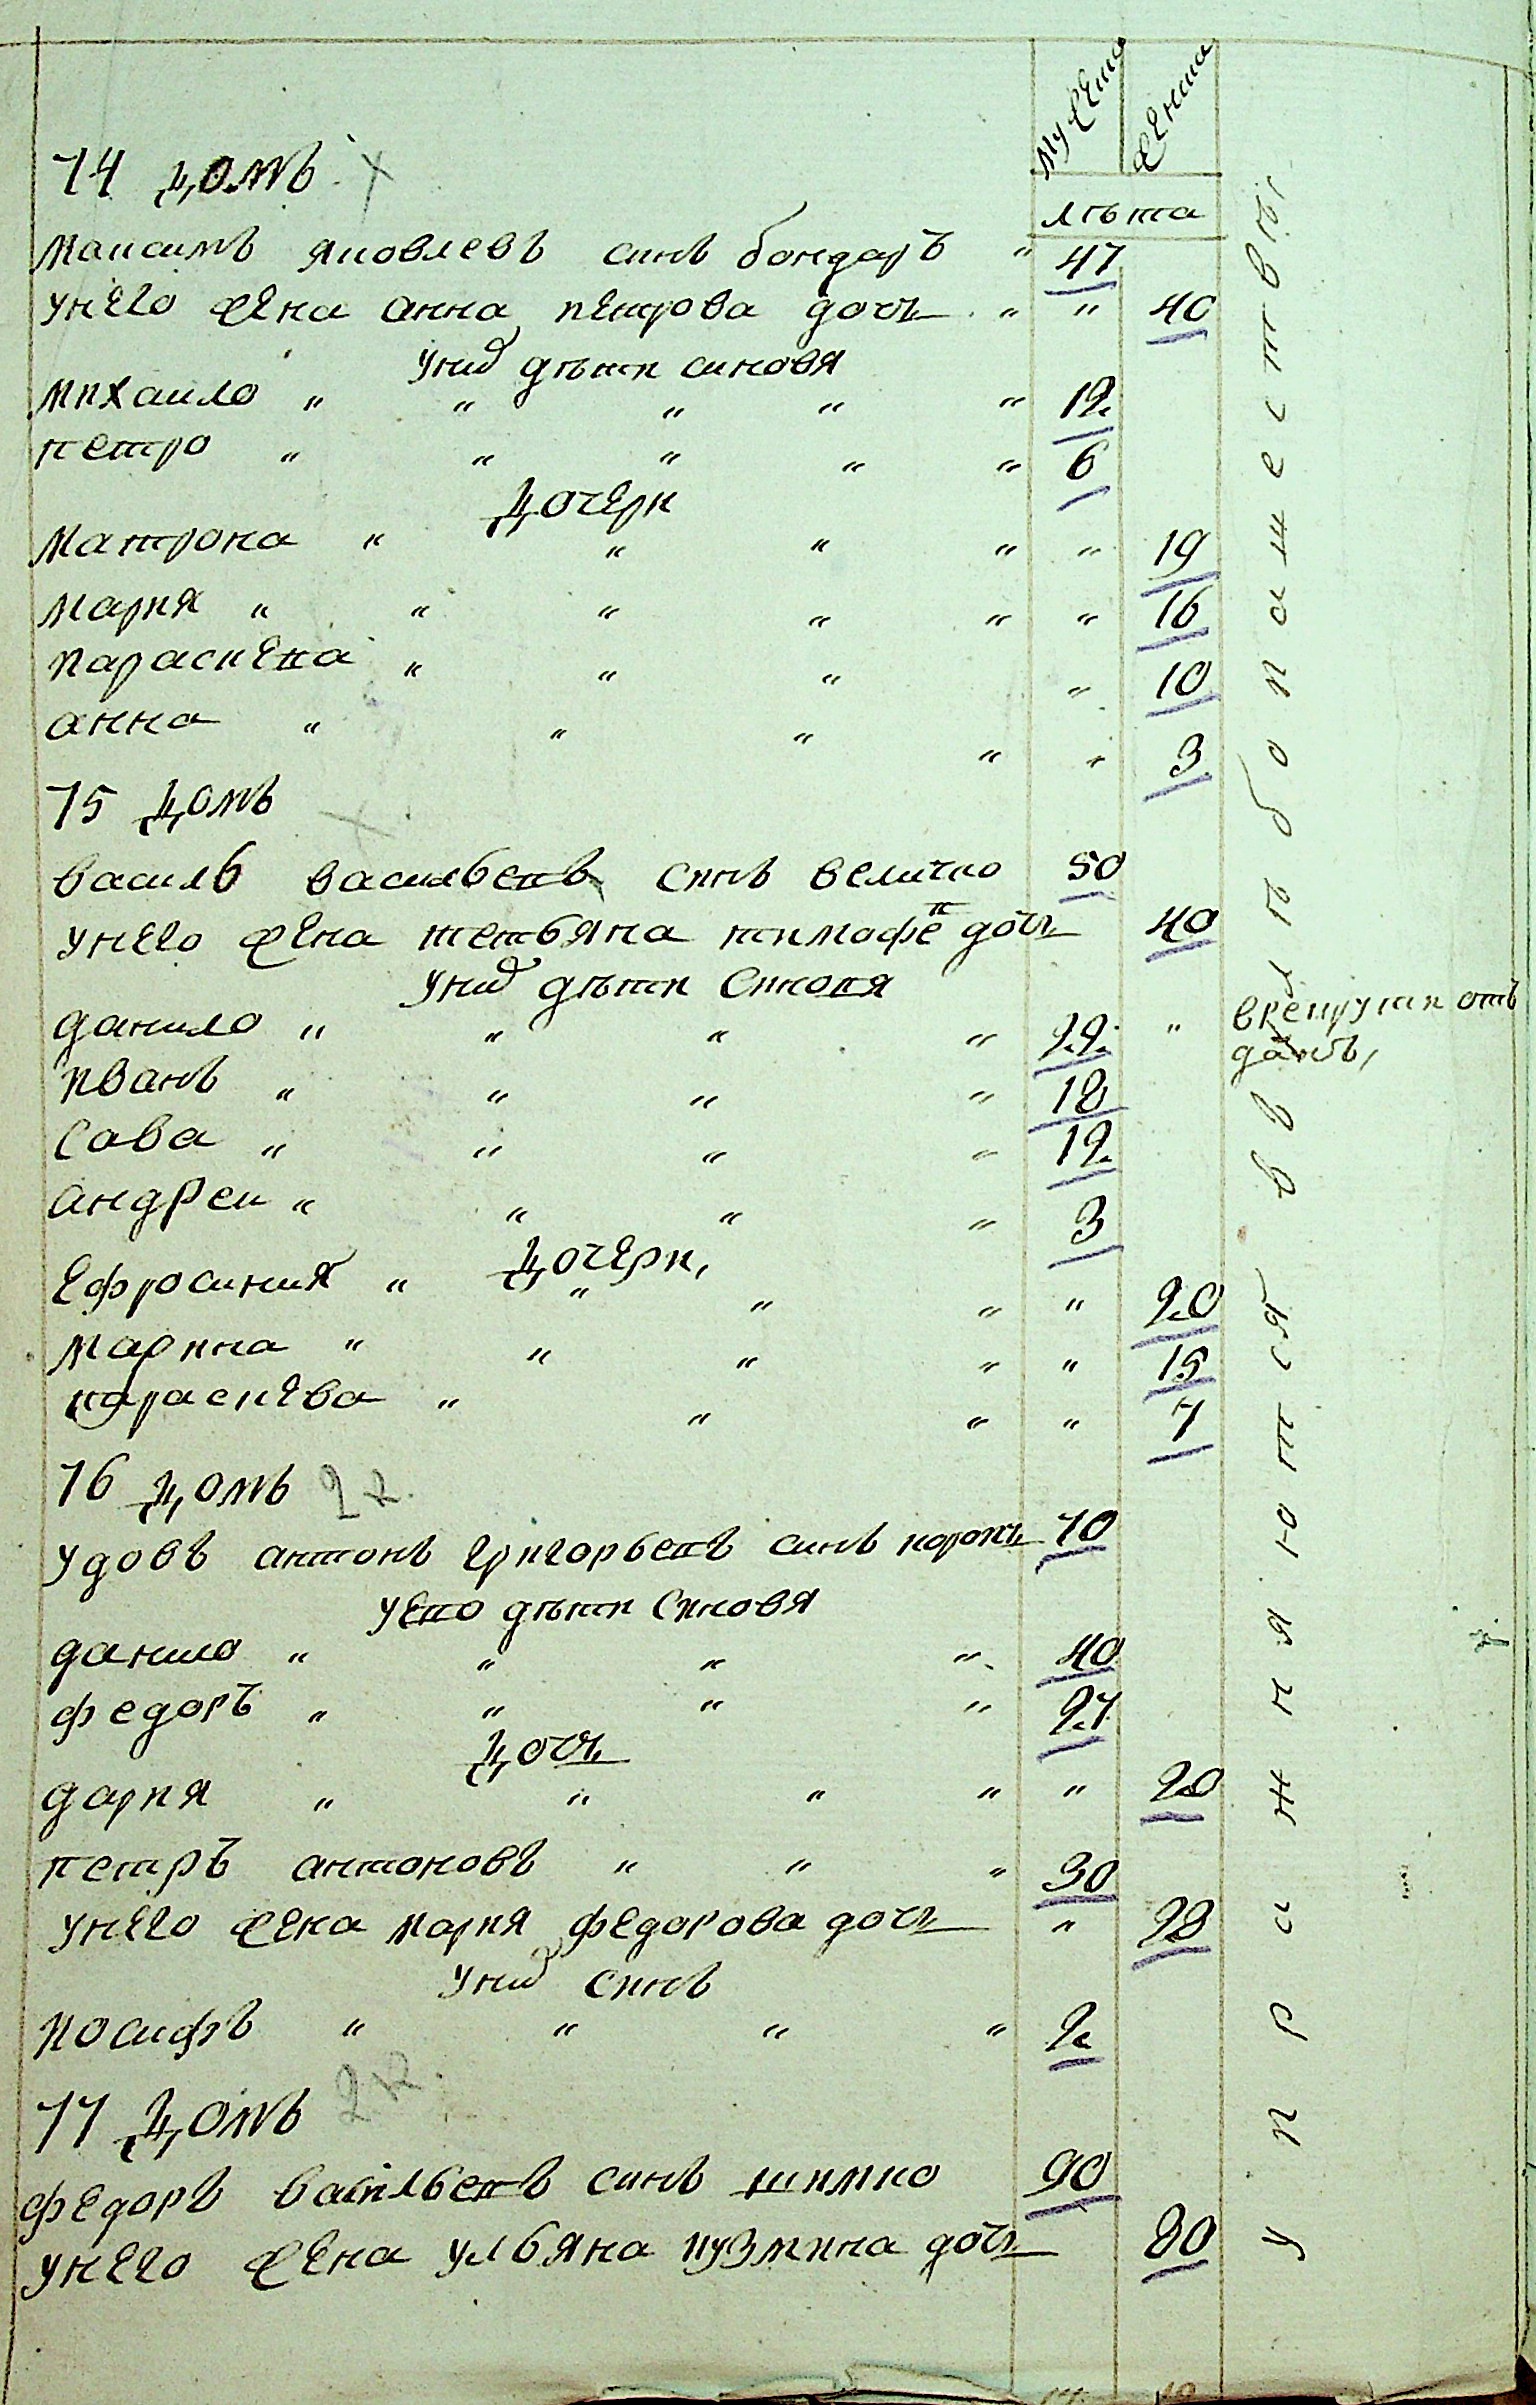 Мужеска Женска
лѣта
74 Домъ
Максимъ Яковлевъ синъ бондаръ " 47
унего жена анна пентрова дочь " " 40
уних дѣти синовя
михаило " " " " " 12
петро " " " " " 6
Дочери
Матрона " " " " " 19
Мария " " " " " " 16
параскева " " " " 10
анна " " " " " 3
75 Домъ
василь васильевъ синъ величко 50
унего жена тетьяна тимофе дочь 40
уних дѣти синовя
данило " " " " 22 "
иванъ " " " " 18
Сава " " " " 12
андреи " " " " 3
Дочери,
Ефросиния " " " " " 20
Марина " " " " " 15
параскева " " " " 7
76 Домъ
удовъ антонъ григорьевъ синъ 70
унего дѣти синовя
данило " " " " 40
федоръ " " " " 27
Дочь
дария " " " " " 20
петръ антоновъ " " " 30
унего жена мария федорова дочь " 28
уних синъ
иосифъ " " " " 2
77 Домъ
федоръ васильевъ синъ шимко 90
унего жена ульяна кузмина дочь 80
упражняются въ хлѣбопашествѣ,
врекрути отъ
данъ,